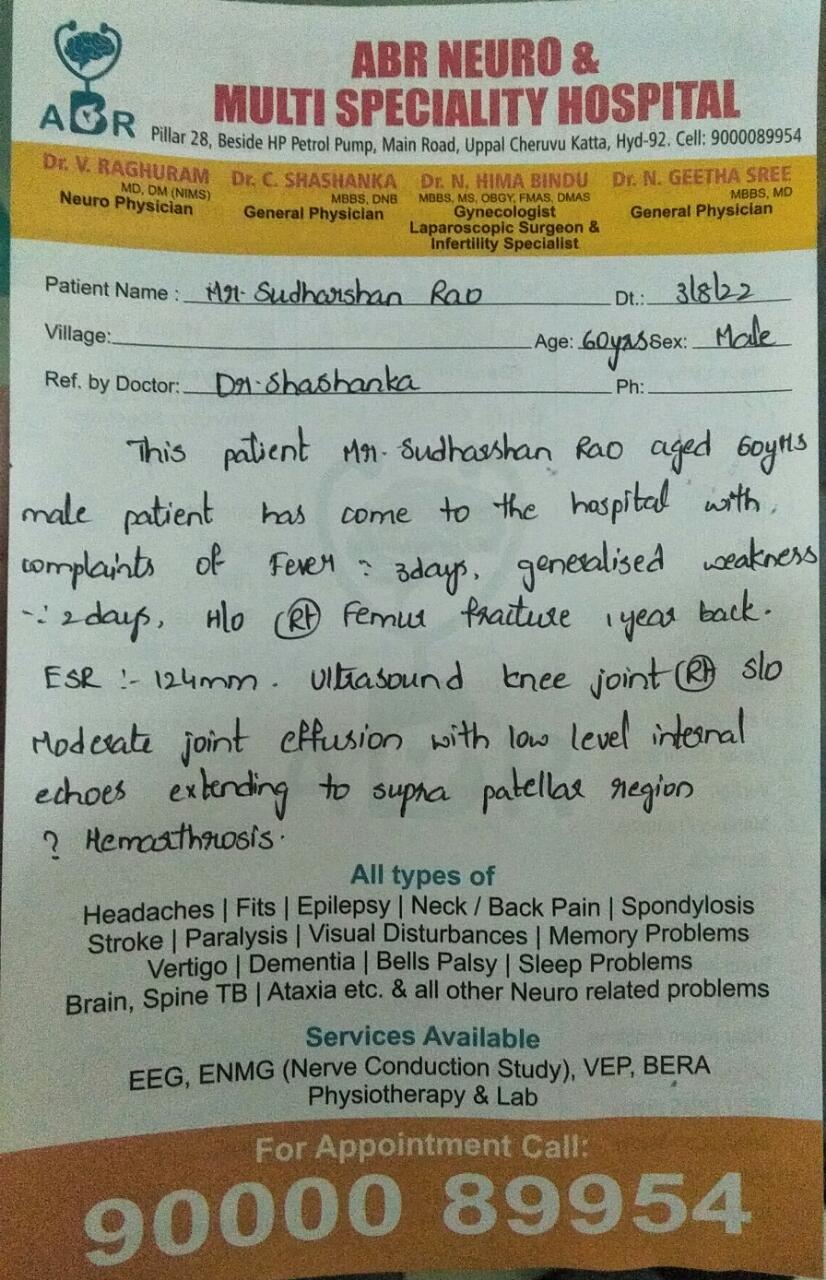 ABR
ABR NEURO &
MULTI SPECIALITY HOSPITAL
Pillar 28, Beside HP Petrol Pump, Main Road, Uppal Cheruvu Katta, Hyd-92. Cell: 9000089954
Dr. V. RAGHURAM
MD, DM (NIMS)
Neuro Physician
Dr. C. SHASHANKA
MBBS, DNB
General Physician
Dr. N. HIMA BINDU
MBBS, MS, OBGY, FMAS, DMAS
Gynecologist
Laparoscopic Surgeon &
Infertility Specialist
Dr. N. GEETHA SREE
MBBS, MD
General Physician
Patient Name : Mr. Sudharshan Rao Dt.: 3/8/22
Village: Age: 60yrs Sex: Male
Ref. by Doctor: Dr. Shashanka Ph:
This patient Mr. Sudharshan Rao aged 60yrs
male patient has come to the hospital with
complaints of Fever : 3days, generalised weakness
-: 2days, H/o (Rt) Femur fracture 1 year back.
ESR :- 124mm. Ultrasound knee joint (Rt) s/o
Moderate joint effusion with low level internal
echoes extending to supra patellar region
? Hemarthrosis.
All types of
Headaches | Fits | Epilepsy | Neck / Back Pain | Spondylosis
Stroke | Paralysis | Visual Disturbances | Memory Problems
Vertigo | Dementia | Bells Palsy | Sleep Problems
Brain, Spine TB | Ataxia etc. & all other Neuro related problems
Services Available
EEG, ENMG (Nerve Conduction Study), VEP, BERA
Physiotherapy & Lab
For Appointment Call:
90000 89954